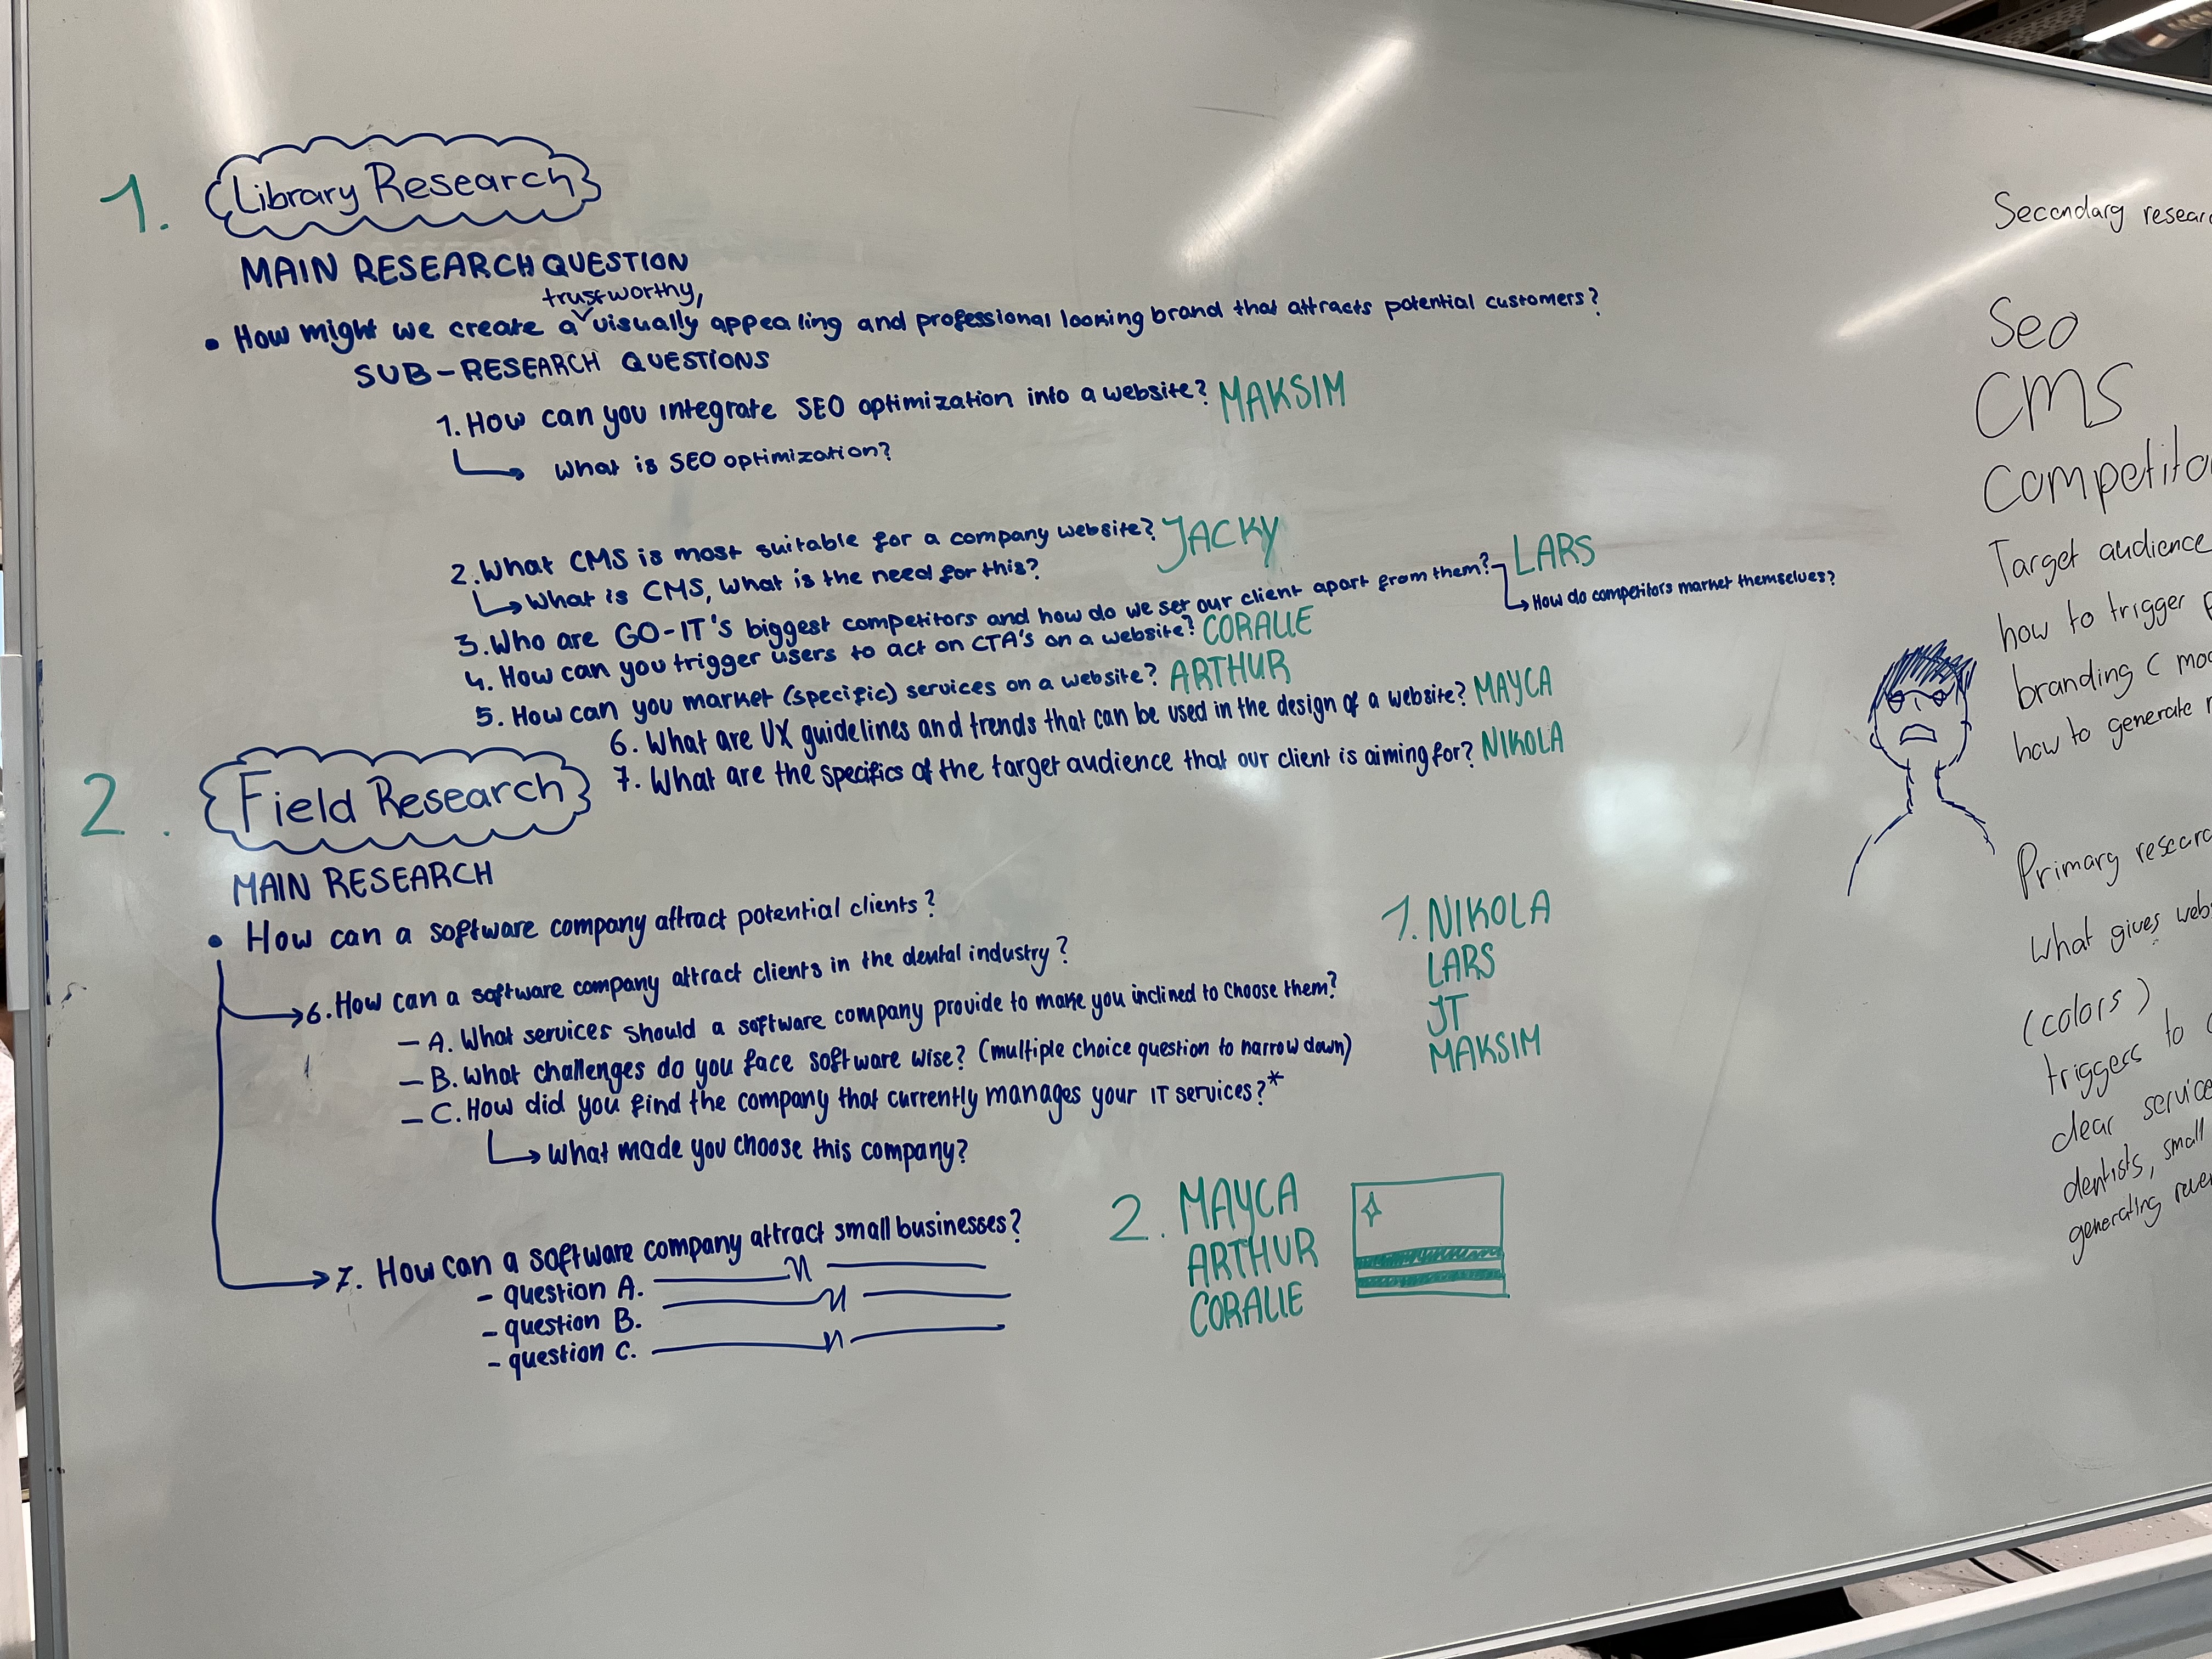 1. Library Research
MAIN RESEARCH QUESTION
trustworthy,
• How might we create a visually appealing and professional looking brand that attracts potential customers?
SUB-RESEARCH QUESTIONS
1. How can you integrate SEO optimization into a website? MAKSIM
What is SEO optimization?
2. What CMS is most suitable for a company website? JACKY
What is CMS, what is the need for this?
3. Who are GO-IT's biggest competitors and how do we set our client apart from them? LARS
How do competitors market themselves?
4. How can you trigger users to act on CTA's on a website? CORALIE
5. How can you market (specific) services on a website? ARTHUR
6. What are UX guidelines and trends that can be used in the design of a website? MAYCA
7. What are the specifics of the target audience that our client is aiming for? NIKOLA
2. Field Research
MAIN RESEARCH
• How can a software company attract potential clients?
6. How can a software company attract clients in the dental industry?
- A. What services should a software company provide to make you inclined to choose them?
- B. What challenges do you face software wise? (multiple choice question to narrow down)
- C. How did you find the company that currently manages your IT services?*
What made you choose this company?
1. NIKOLA
LARS
JT
MAKSIM
7. How can a software company attract small businesses?
- question A.
- question B.
- question C.
2. MAYCA
ARTHUR
CORALIE
Secondarg
Seo
CMS
Target audience
how to trigger
branding (
how to generate
Primarg
What gives
(colors)
triggess to
clear
dentists, small
generating